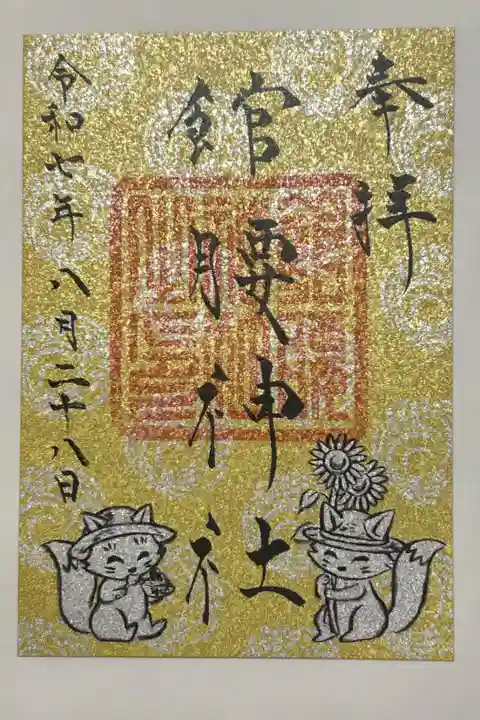 奉拝
館腰神社
令和七年八月二十八日